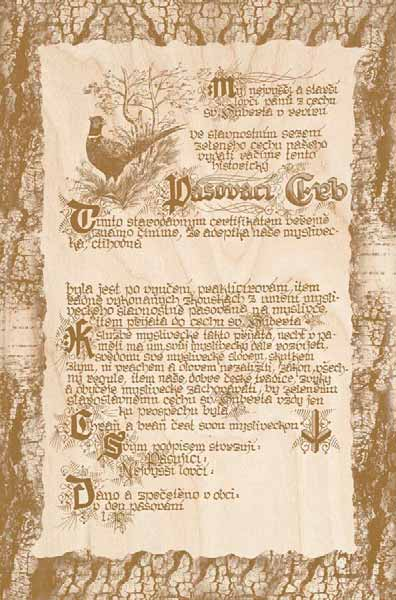 My nejvyšší a slavší
lovčí páni z cechu
sv. Huberta v
ve slavnostním sezení
zeleného cechu našeho
vydati ráčíme tento
historický
Pasovací Erb
Tímto starodávným certifikátem veřejně
známo činíme, že adeptka naše myslivec-
ká, ctihodná
byla jest po vyučení, praktizírování, item
řádně vykonaných zkouškách z umění mysli-
veckého slavnostně pasována na myslivce,
item přijata do cechu sv. Huberta
K službě myslivecké takto přijatá, nechť v pa-
měti má um svůj myslivecký dále rozvíjeti,
svědomí své myslivecké slovem, skutkem
zlým, ni prachem a olovem nezatížit, zákon všech-
ny regule, item naše dobré české tradice, zvyky
a obyčeje myslivecké zachovávati, by zelenému
staroslavnému cechu sv. Huberta vždy jen
ku prospěchu byla
Chraň a braň čest svou mysliveckou
Svým podpisem stvrzují:
Pasující:
Nejvyšší lovčí:
Dáno a zpečetěno v obci:
v den pasování
L.P.